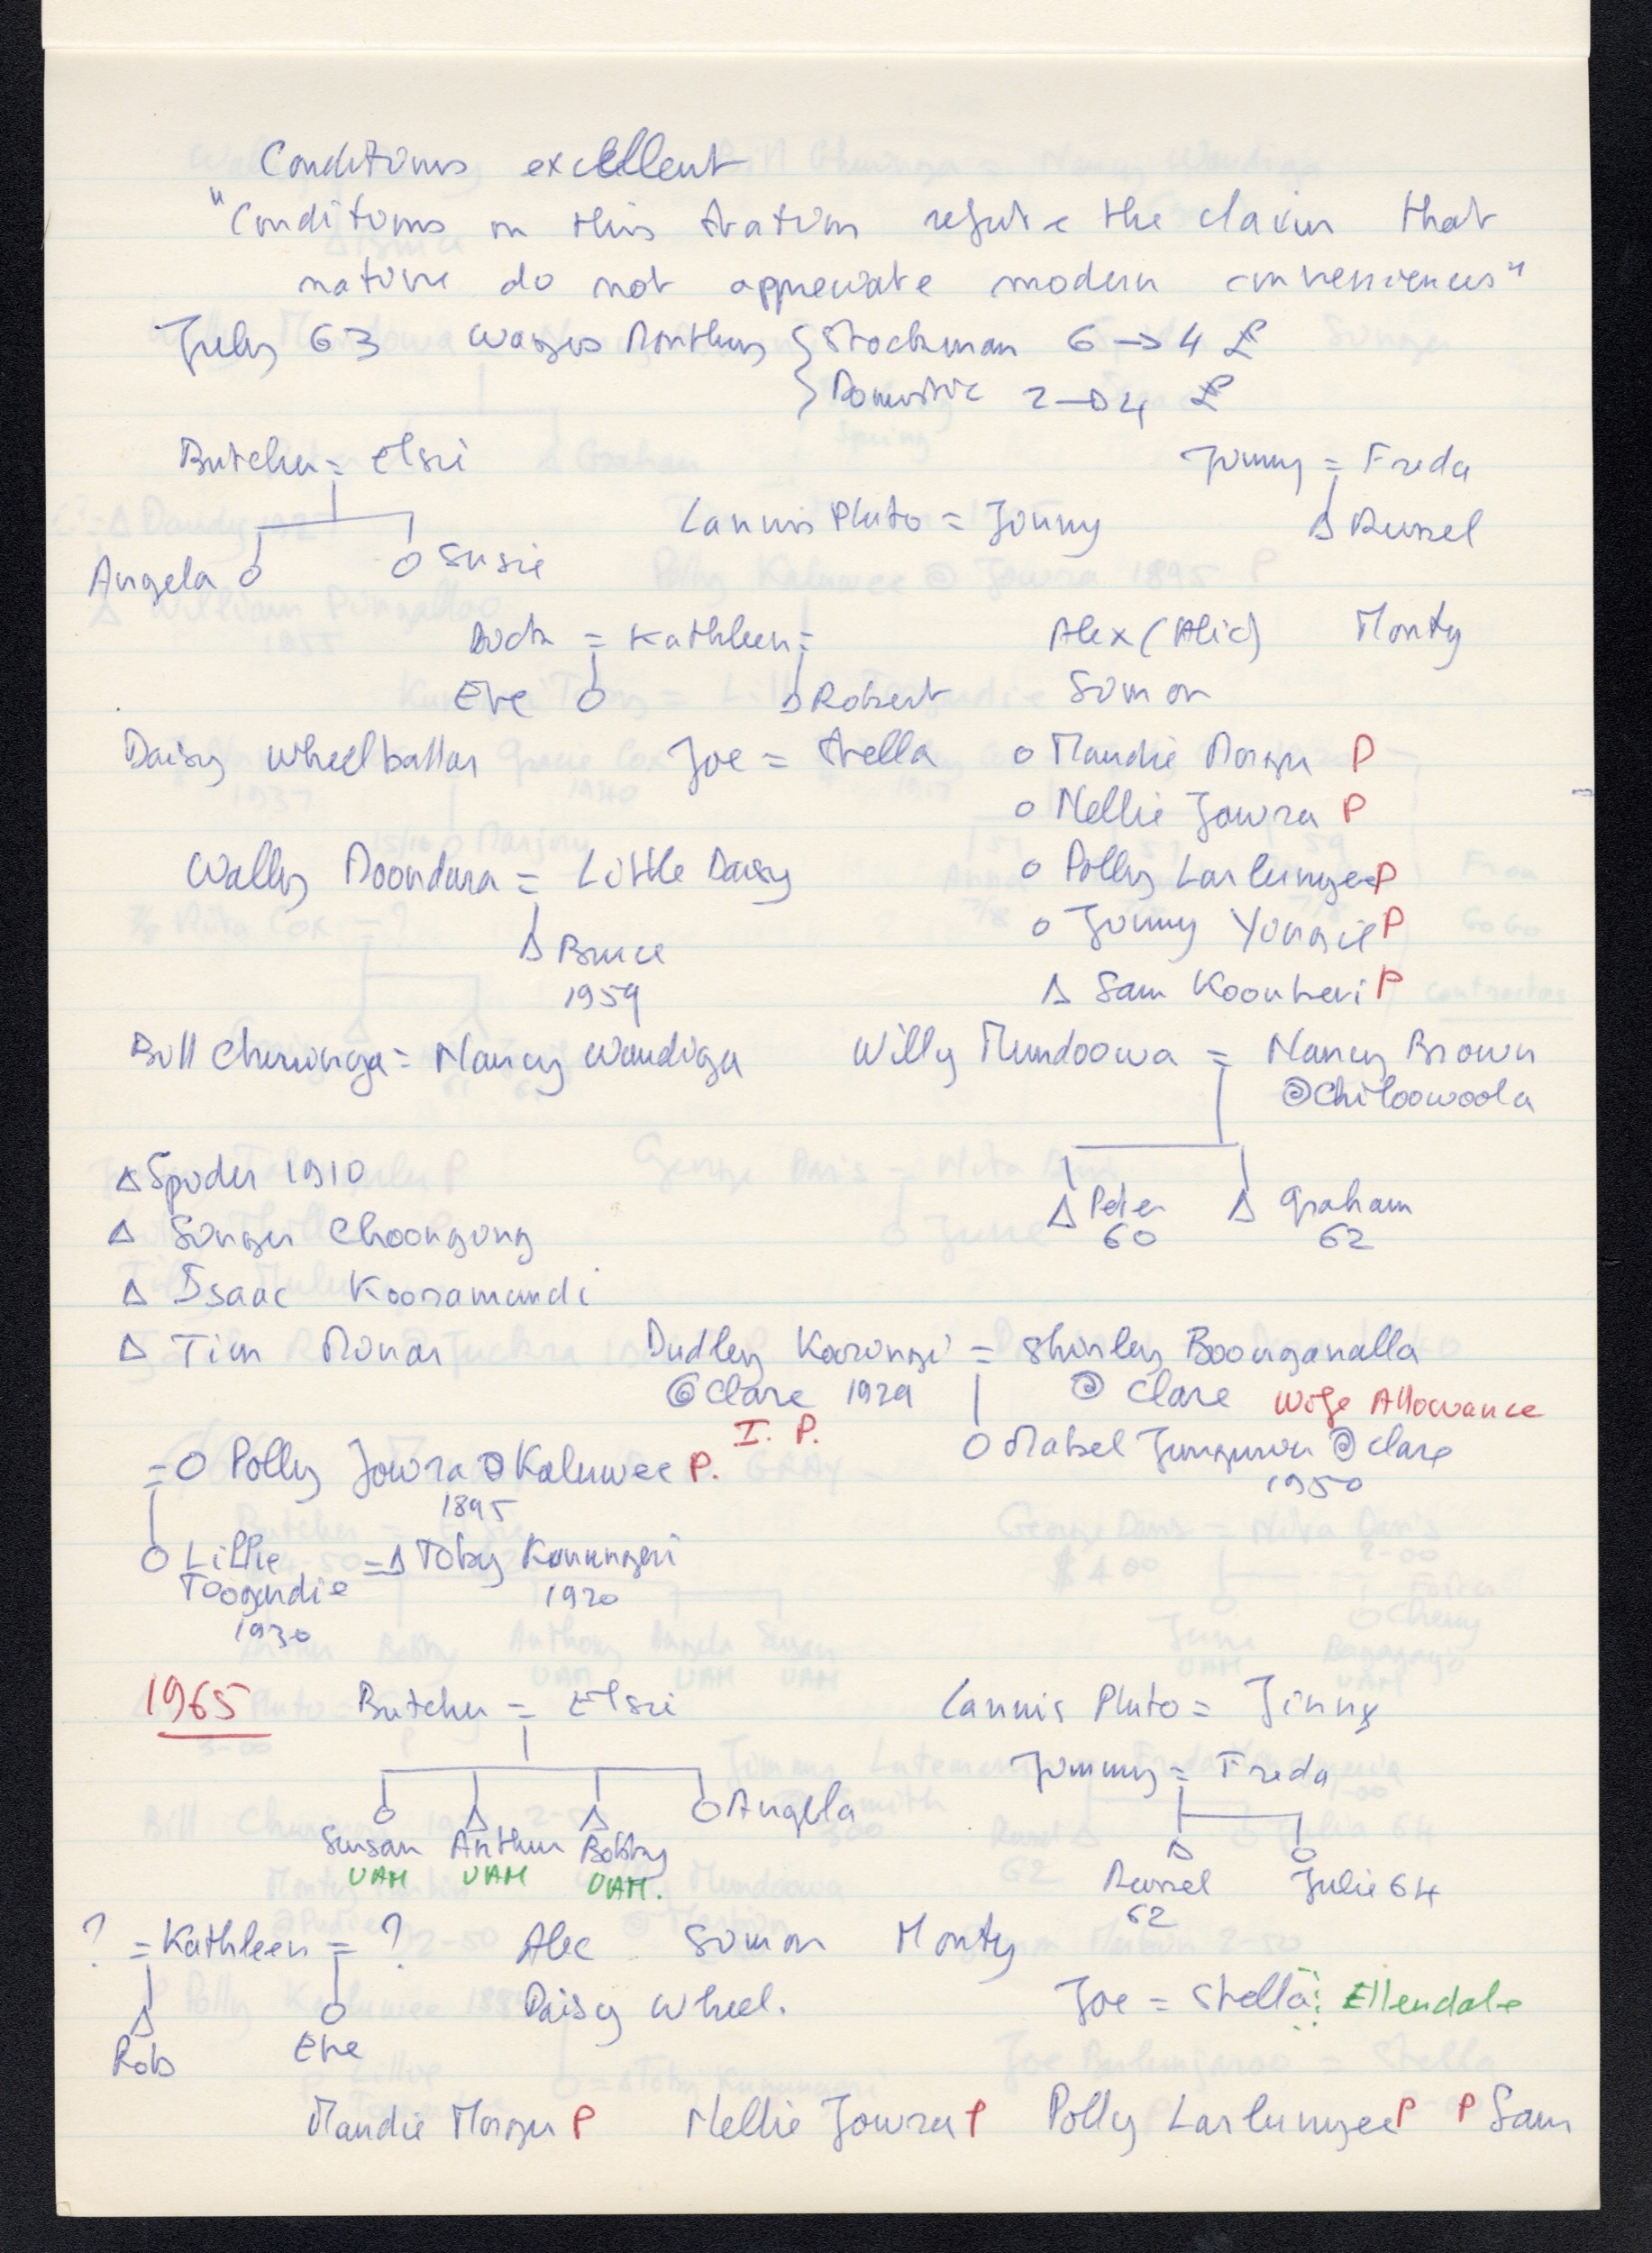 Conditions excellent
"Conditions on this station refute the claim that
native do not appreciate modern conveniences"
July 63 Wages Monthly { Stockman 6 → 4 £
{ Domestic 2 → 4 £
Butcher = Elsie Jimmy = Freda
Lannis Pluto = Jinny Δ Russel
Angela O O Susie
= Kathleen = Alex (Alic) Monty
Eve O Δ Robert Simon
Daisy Wheelbattar Joe = Stella O Maudie Morgn P
O Nellie Jowra P
Wally Moondara = Little Daisy O Polly Larlungee P
O Jinny Yungie P
Δ Bruce
1959 Δ Sam Koonberi P
Bill Churinga = Nancy Wandiga Willy Mundoowa = Nancy Brown
@ Chiloowoola
Δ Spider 1910
Δ Peter Δ Graham
60 62
Δ Ginger Choongung
Δ Isaac Kooramundi
Δ Tim Dudley Kooringi = Shirley Boonganalla
@ Clare 1929 @ Clare Wife Allowance
I. P.
= O Polly Jowra @ Kaluwee P. O Mabel @ Clare
1895 1950
O Lillie = Δ Toby Kunungeri
Toogundie 1920
1930
1965 Butcher = Elsie Lannis Pluto = Jinny
Jimmy = Freda
O Δ Δ O Angela
Susan Arthur Bobby
UAM UAM UAM.
Δ O
Russel Julie 64
62
? = Kathleen = ? Alec Simon Monty
Δ O Daisy Wheel. Joe = Stella Ellendale
Rob Eve
Maudie Morgn P Nellie Jowra P Polly Larlungee P P Sam